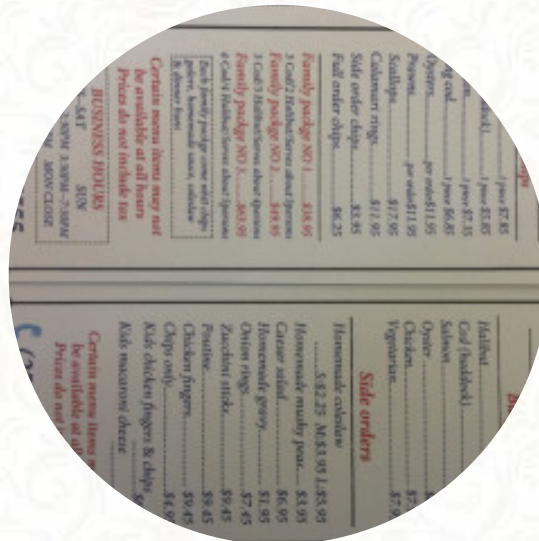 1 piece $7.85
1 piece $5.85
1 piece $7.35
cod 1 piece $6.85
Oysters per order$11.95
Prawns per order$11.95
Scallops $17.95
Calamari rings $11.95
Side order chips $3.95
Full order chips $6.25
Family packge NO 1 $38.95
Family packge NO 2 $49.95
Family packge NO 3 $63.95
Each family packge come whit chips
galore, homemade sauce, coleslaw
& dinner buns
Certain menu items may not
be available at all hours
Prices do not include tax
BUSINESS HOURS
SAT SUN
3:30PM-7:30PM
MON CLOSE
Halibut
Cod (haddock)
Salmon
Oyster
Chicken
Vegetarian $7.9
Side orders
Homemade coleslaw
S:$2.25 M:$3.95 L:$5.95
Homemade mushy pear $3.95
Caesar salad $6.95
Homemade gravy $1.95
Onion rings $7.45
Zucchini sticks $9.45
Poutine $9.45
Chicken fingers $9.45
Chips only $4.95
Kids chicken fingers & chips
Kids macaroni cheese
Certain menu items
be available at all
Prices do not